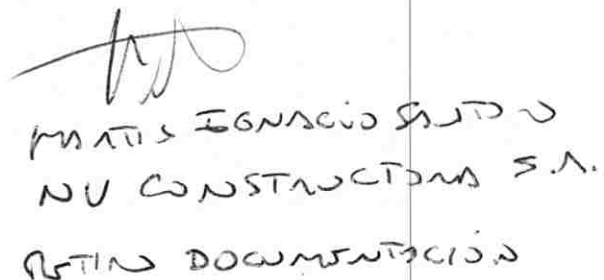 MATIAS IGNACIO
NV CONSTRUCTORA S.A.
RETIRO DOCUMENTACIÓN